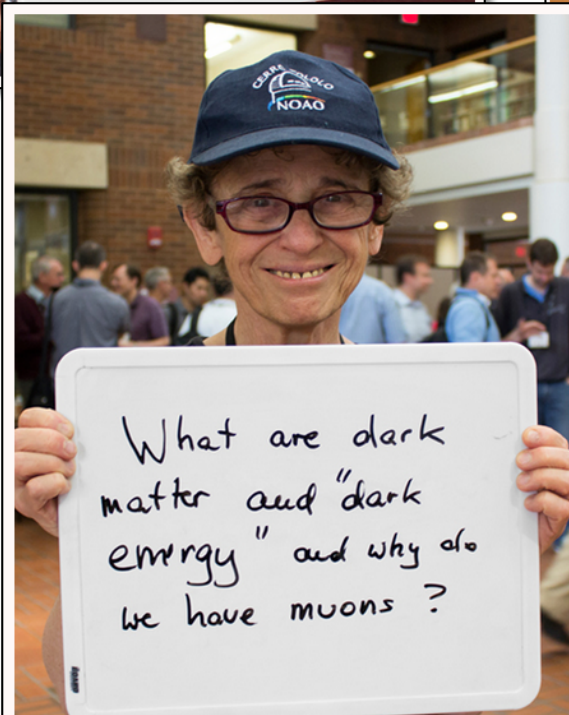 CERRO TOLOLO
NOAO
What are dark
matter and "dark
energy" and why do
we have muons ?